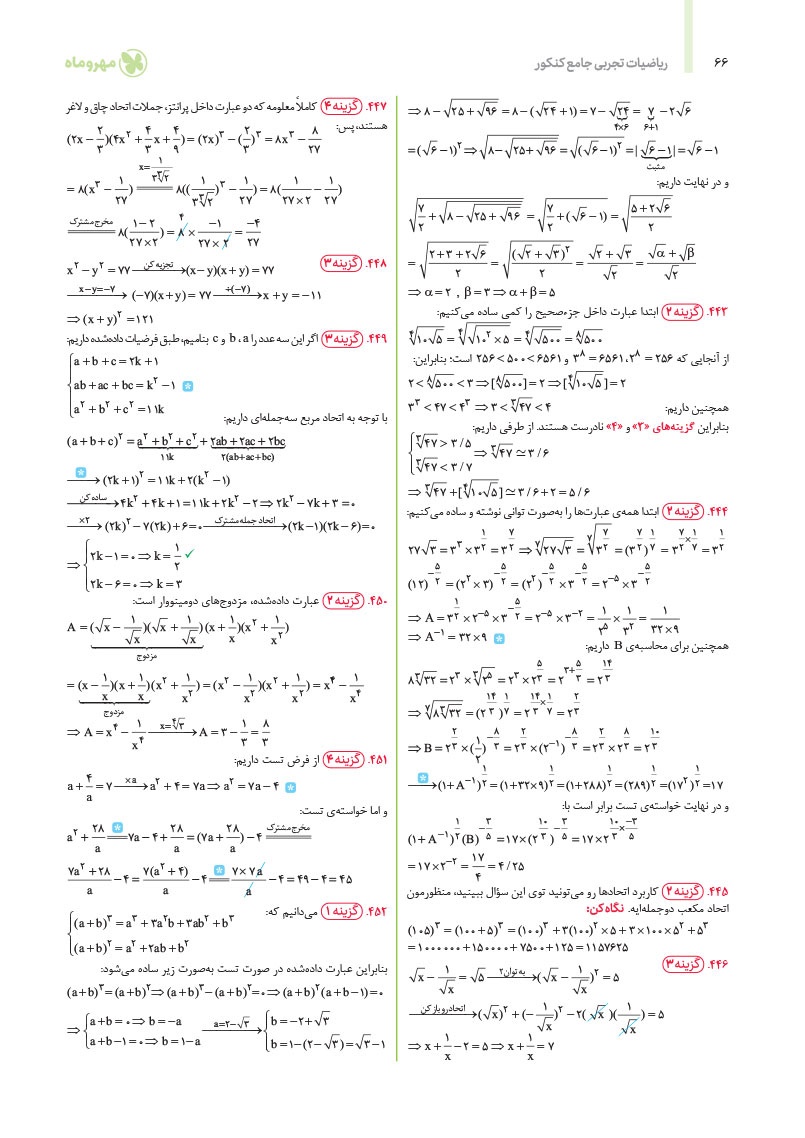 ۶۶
ریاضیات تجربی جامع کنکور
مهروماه
⇒ ۸ − √(۲۵ + √۹۶) = ۸ − (√۲۴ + ۱) = ۷ − √۲۴ = ۷ − ۲√۶
۴×۶ ۶+۱
= (√۶ − ۱)² ⇒ √(۸ − √(۲۵ + √۹۶)) = √((√۶ − ۱)²) = |√۶ − ۱| = √۶ − ۱
مثبت
و در نهایت داریم:
√(۷/۲ + √(۸ − √(۲۵ + √۹۶))) = √(۷/۲ + (√۶ − ۱)) = √((۵ + ۲√۶)/۲)
= √((۲ + ۳ + ۲√۶)/۲) = √((√۲ + √۳)²/۲) = (√۲ + √۳)/√۲ = (√α + √β)/√۲
⇒ α = ۲ , β = ۳ ⇒ α + β = ۵
۴۴۳. گزینه ۲ ابتدا عبارت داخل جزءصحیح را کمی ساده می‌کنیم:
⁴√(۱۰√۵) = ⁴√(√(۱۰² × ۵)) = ⁴√(√۵۰۰) = ⁸√۵۰۰
از آنجایی که ۲⁸ = ۲۵۶، ۳⁸ = ۶۵۶۱ و ۲۵۶ < ۵۰۰ < ۶۵۶۱ است؛ بنابراین:
۲ < ⁸√۵۰۰ < ۳ ⇒ [⁸√۵۰۰] = ۲ ⇒ [⁴√(۱۰√۵)] = ۲
همچنین داریم: ۳³ < ۴۷ < ۴³ ⇒ ۳ < ³√۴۷ < ۴
بنابراین گزینه‌های «۳» و «۴» نادرست هستند. از طرفی داریم:
{ ³√۴۷ > ۳/۵
³√۴۷ < ۳/۷ ⇒ ³√۴۷ ≃ ۳/۶
⇒ ³√۴۷ + [⁴√(۱۰√۵)] ≃ ۳/۶ + ۲ = ۵/۶
۴۴۴. گزینه ۲ ابتدا همه‌ی عبارت‌ها را به‌صورت توانی نوشته و ساده می‌کنیم:
۲۷√۳ = ۳³ × ۳^(۱/۲) = ۳^(۷/۲) ⇒ ⁷√(۲۷√۳) = ⁷√(۳^(۷/۲)) = (۳^(۷/۲))^(۱/۷) = ۳^(۷/۲ × ۱/۷) = ۳^(۱/۲)
(۱۲)^(−۵/۲) = (۲² × ۳)^(−۵/۲) = (۲²)^(−۵/۲) × ۳^(−۵/۲) = ۲^(−۵) × ۳^(−۵/۲)
⇒ A = ۳^(۱/۲) × ۲^(−۵) × ۳^(−۵/۲) = ۲^(−۵) × ۳^(−۲) = ۱/۳^۵ × ۱/۳² = ۱/(۳۲×۹)
⇒ A⁻¹ = ۳۲ × ۹ *
همچنین برای محاسبه‌ی B داریم:
۸³√۳۲ = ۲³ × ³√(۲⁵) = ۲³ × ۲^(۵/۳) = ۲^(۳+۵/۳) = ۲^(۱۴/۳)
⇒ ⁷√(۸³√۳۲) = (۲^(۱۴/۳))^(۱/۷) = ۲^(۱۴/۳ × ۱/۷) = ۲^(۲/۳)
⇒ B = ۲^(۲/۳) × (۱/۲)^(−۸/۳) = ۲^(۲/۳) × (۲⁻¹)^(−۸/۳) = ۲^(۲/۳) × ۲^(۸/۳) = ۲^(۱۰/۳)
* → (۱ + A⁻¹)^(۱/۲) = (۱ + ۳۲×۹)^(۱/۲) = (۱ + ۲۸۸)^(۱/۲) = (۲۸۹)^(۱/۲) = (۱۷²)^(۱/۲) = ۱۷
و در نهایت خواسته‌ی تست برابر است با:
(۱ + A⁻¹)^(۱/۲) (B)^(−۳/۵) = ۱۷ × (۲^(۱۰/۳))^(−۳/۵) = ۱۷ × ۲^(۱۰/۳ × −۳/۵)
= ۱۷ × ۲⁻² = ۱۷/۴ = ۴/۲۵
۴۴۵. گزینه ۲ کاربرد اتحادها رو می‌تونید توی این سؤال ببینید، منظورمون
اتحاد مکعب دوجمله‌ایه. نگاه کن:
(۱۰۵)³ = (۱۰۰ + ۵)³ = (۱۰۰)³ + ۳(۱۰۰)² × ۵ + ۳ × ۱۰۰ × ۵² + ۵³
= ۱۰۰۰۰۰۰ + ۱۵۰۰۰۰ + ۷۵۰۰ + ۱۲۵ = ۱۱۵۷۶۲۵
۴۴۶. گزینه ۳
√x − ۱/√x = √۵ به توان ۲ → (√x − ۱/√x)² = ۵
اتحادرو باز کن → (√x)² + (−۱/√x)² − ۲(√x)(۱/√x) = ۵
⇒ x + ۱/x − ۲ = ۵ ⇒ x + ۱/x = ۷
۴۴۷. گزینه ۴ کاملاً معلومه که دو عبارت داخل پرانتز، جملات اتحاد چاق و لاغر
هستند، پس: (۲x − ۲/۳)(۴x² + ۴/۳ x + ۴/۹) = (۲x)³ − (۲/۳)³ = ۸x³ − ۸/۲۷
= ۸(x³ − ۱/۲۷) = [x = ۱/(۳³√۲)] ۸((۱/(۳³√۲))³ − ۱/۲۷) = ۸(۱/(۲۷×۲) − ۱/۲۷)
مخرج مشترک = ۸((۱−۲)/(۲۷×۲)) = ۸ ۴ × −۱/(۲۷×۲) = −۴/۲۷
۴۴۸. گزینه ۳ x² − y² = ۷۷ تجزیه کن → (x − y)(x + y) = ۷۷
x−y=−۷ → (−۷)(x + y) = ۷۷ ÷(−۷) → x + y = −۱۱
⇒ (x + y)² = ۱۲۱
۴۴۹. گزینه ۳ اگر این سه عدد را a، b و c بنامیم، طبق فرضیات داده‌شده داریم:
{ a + b + c = ۲k + ۱
ab + ac + bc = k² − ۱ *
a² + b² + c² = ۱۱k
با توجه به اتحاد مربع سه‌جمله‌ای داریم:
(a + b + c)² = a² + b² + c² + ۲ab + ۲ac + ۲bc
۱۱k ۲(ab+ac+bc)
* → (۲k + ۱)² = ۱۱k + ۲(k² − ۱)
ساده کن → ۴k² + ۴k + ۱ = ۱۱k + ۲k² − ۲ ⇒ ۲k² − ۷k + ۳ = ۰
×۲ → (۲k)² − ۷(۲k) + ۶ = ۰ اتحاد جمله مشترک → (۲k − ۱)(۲k − ۶) = ۰
⇒ { ۲k − ۱ = ۰ ⇒ k = ۱/۲ ✓
۲k − ۶ = ۰ ⇒ k = ۳
۴۵۰. گزینه ۲ عبارت داده‌شده، مزدوج‌های دومینووار است:
A = (√x − ۱/√x)(√x + ۱/√x)(x + ۱/x)(x² + ۱/x²)
مزدوج
= (x − ۱/x)(x + ۱/x)(x² + ۱/x²) = (x² − ۱/x²)(x² + ۱/x²) = x⁴ − ۱/x⁴
مزدوج
⇒ A = x⁴ − ۱/x⁴ x=⁴√۳ → A = ۳ − ۱/۳ = ۸/۳
۴۵۱. گزینه ۴ از فرض تست داریم:
a + ۴/a = ۷ ×a → a² + ۴ = ۷a ⇒ a² = ۷a − ۴ *
و اما خواسته‌ی تست:
a² + ۲۸/a = * ۷a − ۴ + ۲۸/a = (۷a + ۲۸/a) − ۴ مخرج مشترک =
(۷a² + ۲۸)/a − ۴ = ۷(a² + ۴)/a − ۴ = * (۷×۷a)/a − ۴ = ۴۹ − ۴ = ۴۵
۴۵۲. گزینه ۱ می‌دانیم که:
{ (a + b)³ = a³ + ۳a²b + ۳ab² + b³
(a + b)² = a² + ۲ab + b²
بنابراین عبارت داده‌شده در صورت تست به‌صورت زیر ساده می‌شود:
(a + b)³ = (a + b)² ⇒ (a + b)³ − (a + b)² = ۰ ⇒ (a + b)²(a + b − ۱) = ۰
⇒ { a + b = ۰ ⇒ b = −a
a + b − ۱ = ۰ ⇒ b = ۱ − a a=۲−√۳ → { b = −۲ + √۳
b = ۱ − (۲ − √۳) = √۳ − ۱